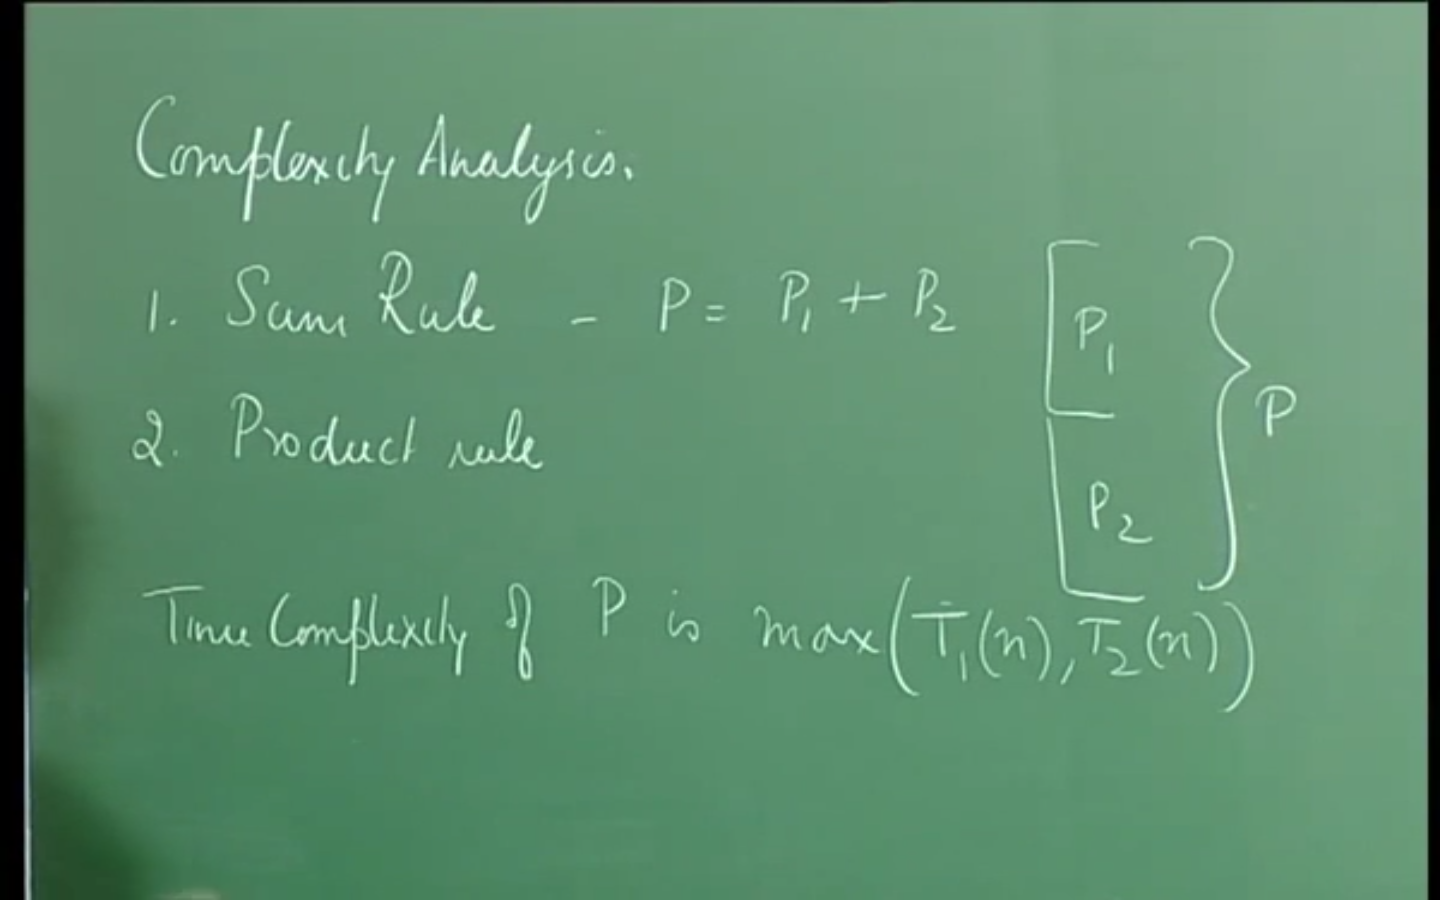 Complexity Analysis.
1. Sum Rule - P = P₁ + P₂
2. Product rule
P₁
P₂
P
Time Complexity of P is max(T₁(n), T₂(n))